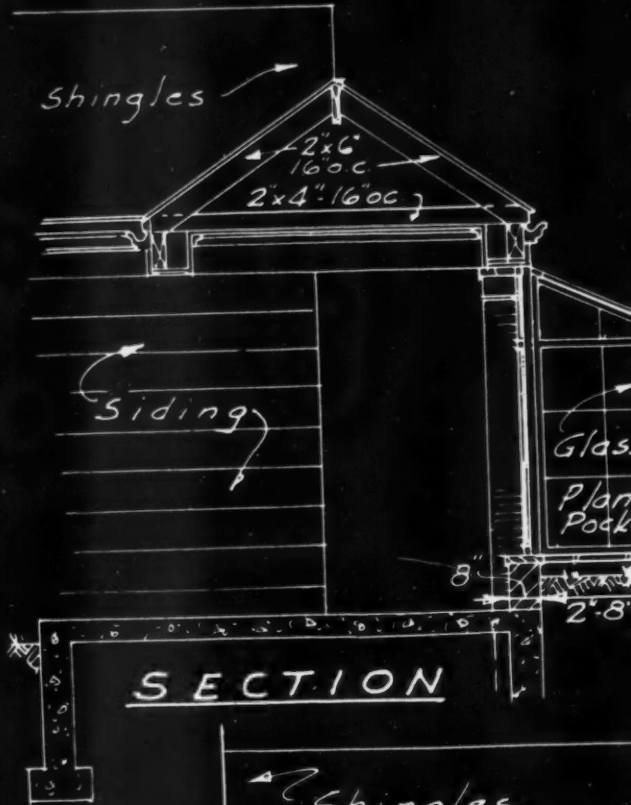 Shingles
2"x6"
16"o.c.
2"x4"-16"oc
Siding
Glas
Plan
Pock
8"
2'-8"
SECTION
Shingles